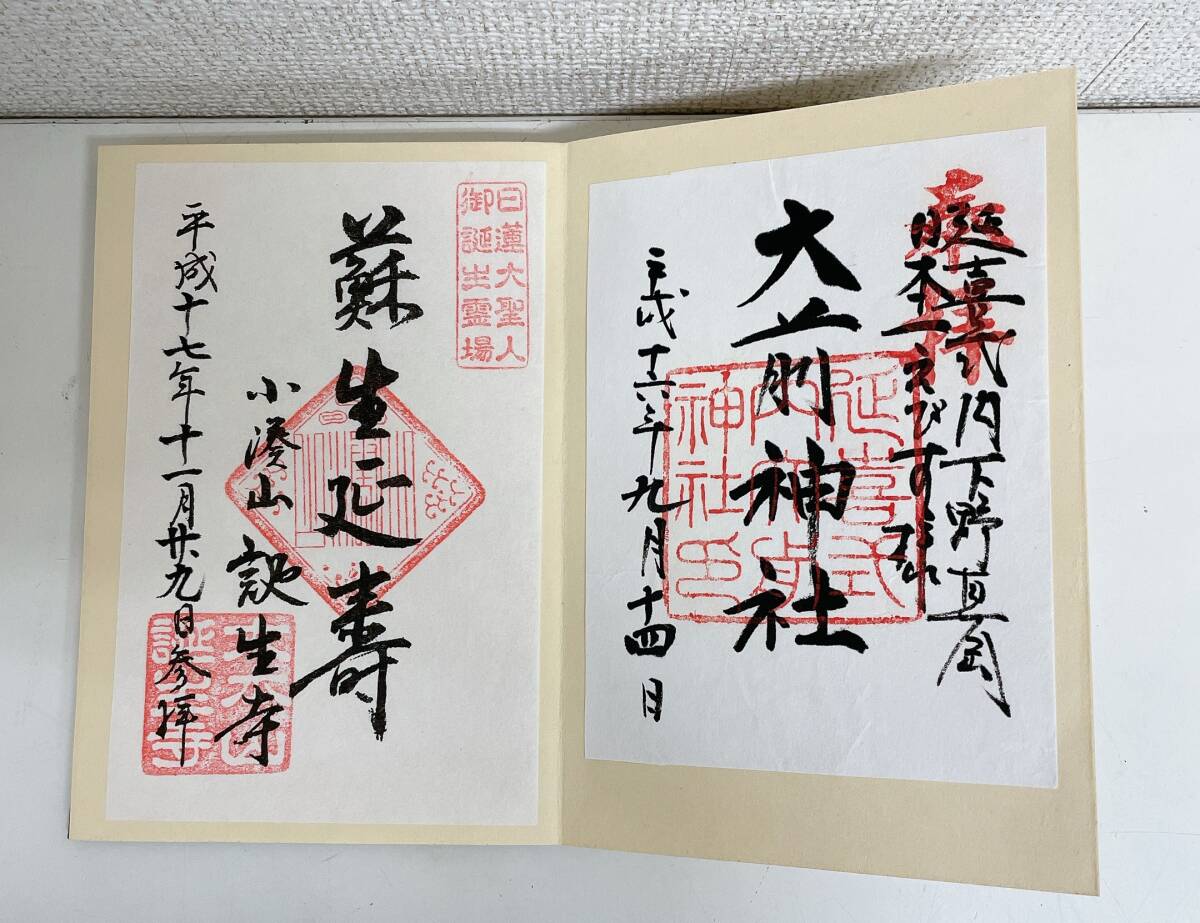 奉拝
延喜式内下野真岡
日本一えびす
大前神社
平成十六年九月十四日
延喜式
内大前
神社印
日蓮大聖人
御誕生霊場
蘇生延寿
小湊山 誕生寺
平成十七年十一月廿九日参拝